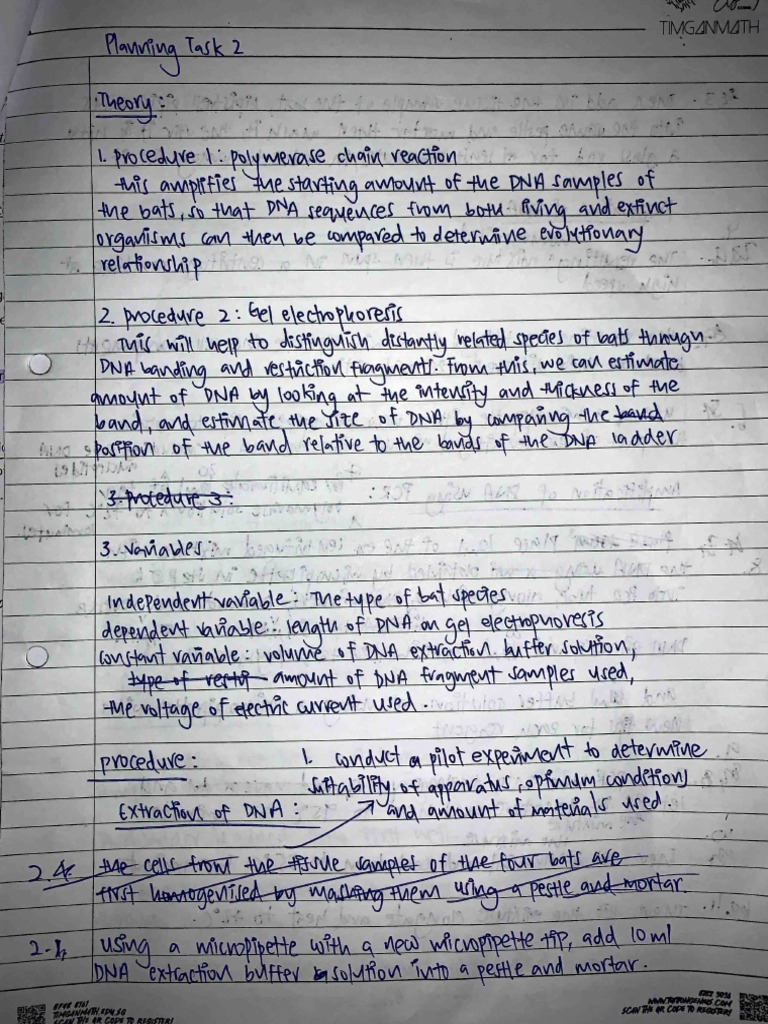 TIMGANMATH
Planning Task 2
Theory:
1. procedure 1: polymerase chain reaction
this amplifies the starting amount of the DNA samples of
the bats, so that DNA sequences from both living and extinct
organisms can then be compared to determine evolutionary
relationship
2. procedure 2: Gel electrophoresis
This will help to distinguish distantly related species of bats through
DNA banding and restriction fragments. From this, we can estimate
amount of DNA by looking at the intensity and thickness of the
band, and estimate the size of DNA by comparing the band
position of the band relative to the bands of the DNA ladder
3. procedure 3:
3. variables:
Independent variable: The type of bat species
dependent variable: length of DNA on gel electrophoresis
constant variable: volume of DNA extraction buffer solution,
type of restri amount of DNA fragment samples used,
the voltage of electric current used.
procedure:
1. conduct a pilot experiment to determine
suitability of apparatus, optimum condition
and amount of materials used.
Extraction of DNA:
2. the cells from the tissue samples of the four bats are
first homogenised by mashing them using a pestle and mortar.
2. using a micropipette with a new micropipette tip, add 10 ml
DNA extraction buffer solution into a pestle and mortar.
TIMGANMATH.EDU.SG
SCAN THE QR CODE TO REGISTER!
SCAN THE QR CODE TO REGISTER!